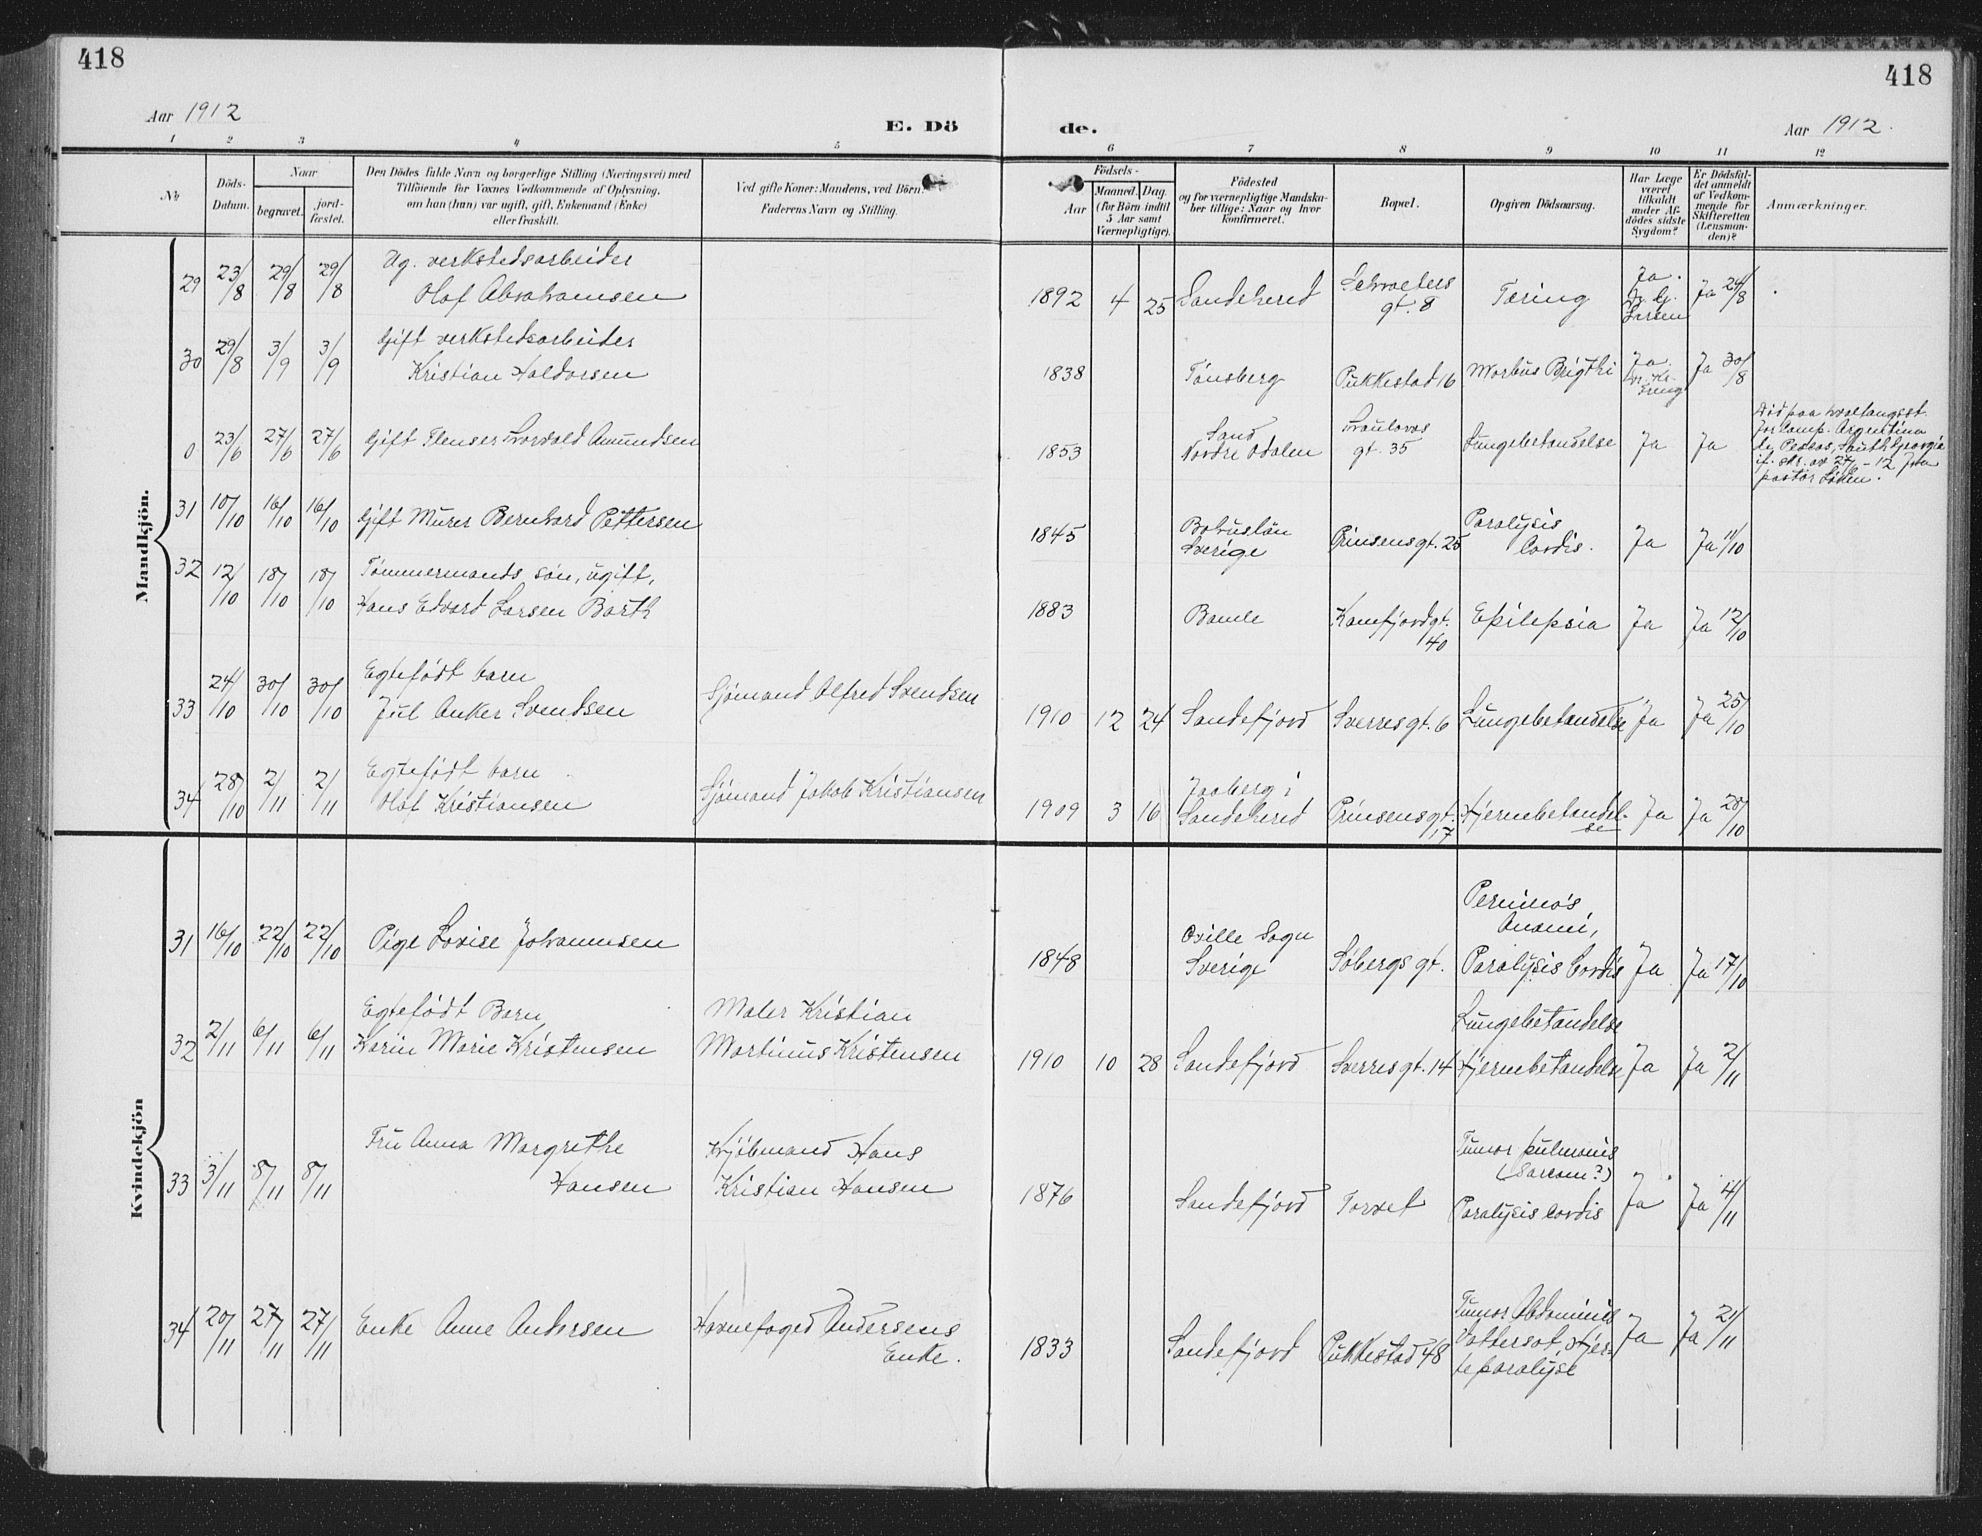 418
418
Aar 1912
E. Dö
de.
Aar 1912.
1 2 3 4 5 6 7 8 9 10 11 12
Nr
Döds-
Datum.
Naar
begravet.
jord-
fæstet.
Den Dödes fulde Navn og borgerlige Stilling (Næringsvei) med
Tilföiende for Voxnes Vedkommende af Oplysning,
om han (hun) var ugift, gift, Enkemand (Enke)
eller fraskilt.
Ved gifte Koner: Mandens, ved Börn:
Faderens Navn og Stilling.
Födsels-
Aar
Maaned.
Dag.
(for Börn indtil
5 Aar samt
Værnepligtige).
Födested
og for værnepligtige Mandska-
ber tillige: Naar og hvor
konfirmeret.
Bopæl.
Opgiven Dödsaarsag.
Har Læge
været
tilkaldt
under Af-
dödes sidste
Sygdom?
Er Dödsfal-
det anmeldt
af Vedkom-
mende for
Skifteretten
(Lensman-
den)?
Anmærkninger.
Mandkjön.
29 23/8 29/8 29/8 Ug. verkstedsarbeider
Olaf Abrahamsen
1892 4 25 Sandeherred Schroeters
gt. 8 Tæring Ja.
Larsen Ja 24/8
30 29/8 3/9 3/9 Gift verkstedsarbeider
Kristian Haldorsen
1838 Tønsberg Pukkestad 16 Morbus Brigthi Ja. Ja 30/8
0 23/6 27/6 27/6 Gift Flenser Thorvald Amundsen
1853 Sand
Nordre Odalen
gt. 35 Lungebetændelse Ja Ja
Død paa hvalfangsst.
for Comp. Argentina
de Pescas, South Georgia
if. skr. av 27/6-12 fra
pastor Løken.
31 10/10 16/10 16/10 Gift Murer Bernhard Pettersen
1845 Bohuslän
Sverige Prinsensgt. 25 Paralysis
Cordis. Ja Ja 11/10
32 12/10 18/10 18/10 Tømmermands søn, ugift,
Hans Edvard Larsen Barth
1883 Bamle Kamfjordgt.
40 Epilepsia Ja Ja 12/10
33 24/10 30/10 30/10 Egtefødt barn
Jul Anker Svendsen Sjømand Alfred Svendsen
1910 12 24 Sandefjord Sverresgt. 6 Lungebetændelse Ja Ja 25/10
34 28/10 2/11 2/11 Egtefødt barn
Olaf Kristiansen Sjømand Jakob Kristiansen
1909 3 16 Jaaberg i
Sandeherred Prinsensgt.
17 Hjernebetændel-
se Ja Ja 28/10
Kvindekjön
31 16/10 22/10 22/10 Pige Lovise Johannesen
1848 Qville Sogn
Sverige Søbergs gt. Perniciøs
Anæmi,
Paralysis Cordis Ja Ja 17/10
32 2/11 6/11 6/11 Egtefødt Barn
Karin Marie Kristensen
Maler Kristian
Martinus Kristensen
1910 10 28 Sandefjord Sverresgt. 14 Lungebetændelse
Hjernebetændelse Ja Ja 2/11
33 3/11 8/11 8/11 Fru Anna Margrethe
Hansen
Kjøbmand Hans
Kristian Hansen
1876 Sandefjord Torvet Tumor pulmonis
(Sarcom?)
Paralysis Cordis Ja Ja 4/11
34 20/11 27/11 27/11 Enke Anne Andersen
Havnefoged Andersens
Enke.
1833 Sandefjord Pukkestad 48 Tumor Abdominis
Vattersot, Hjer-
teparalyse Ja Ja 21/11